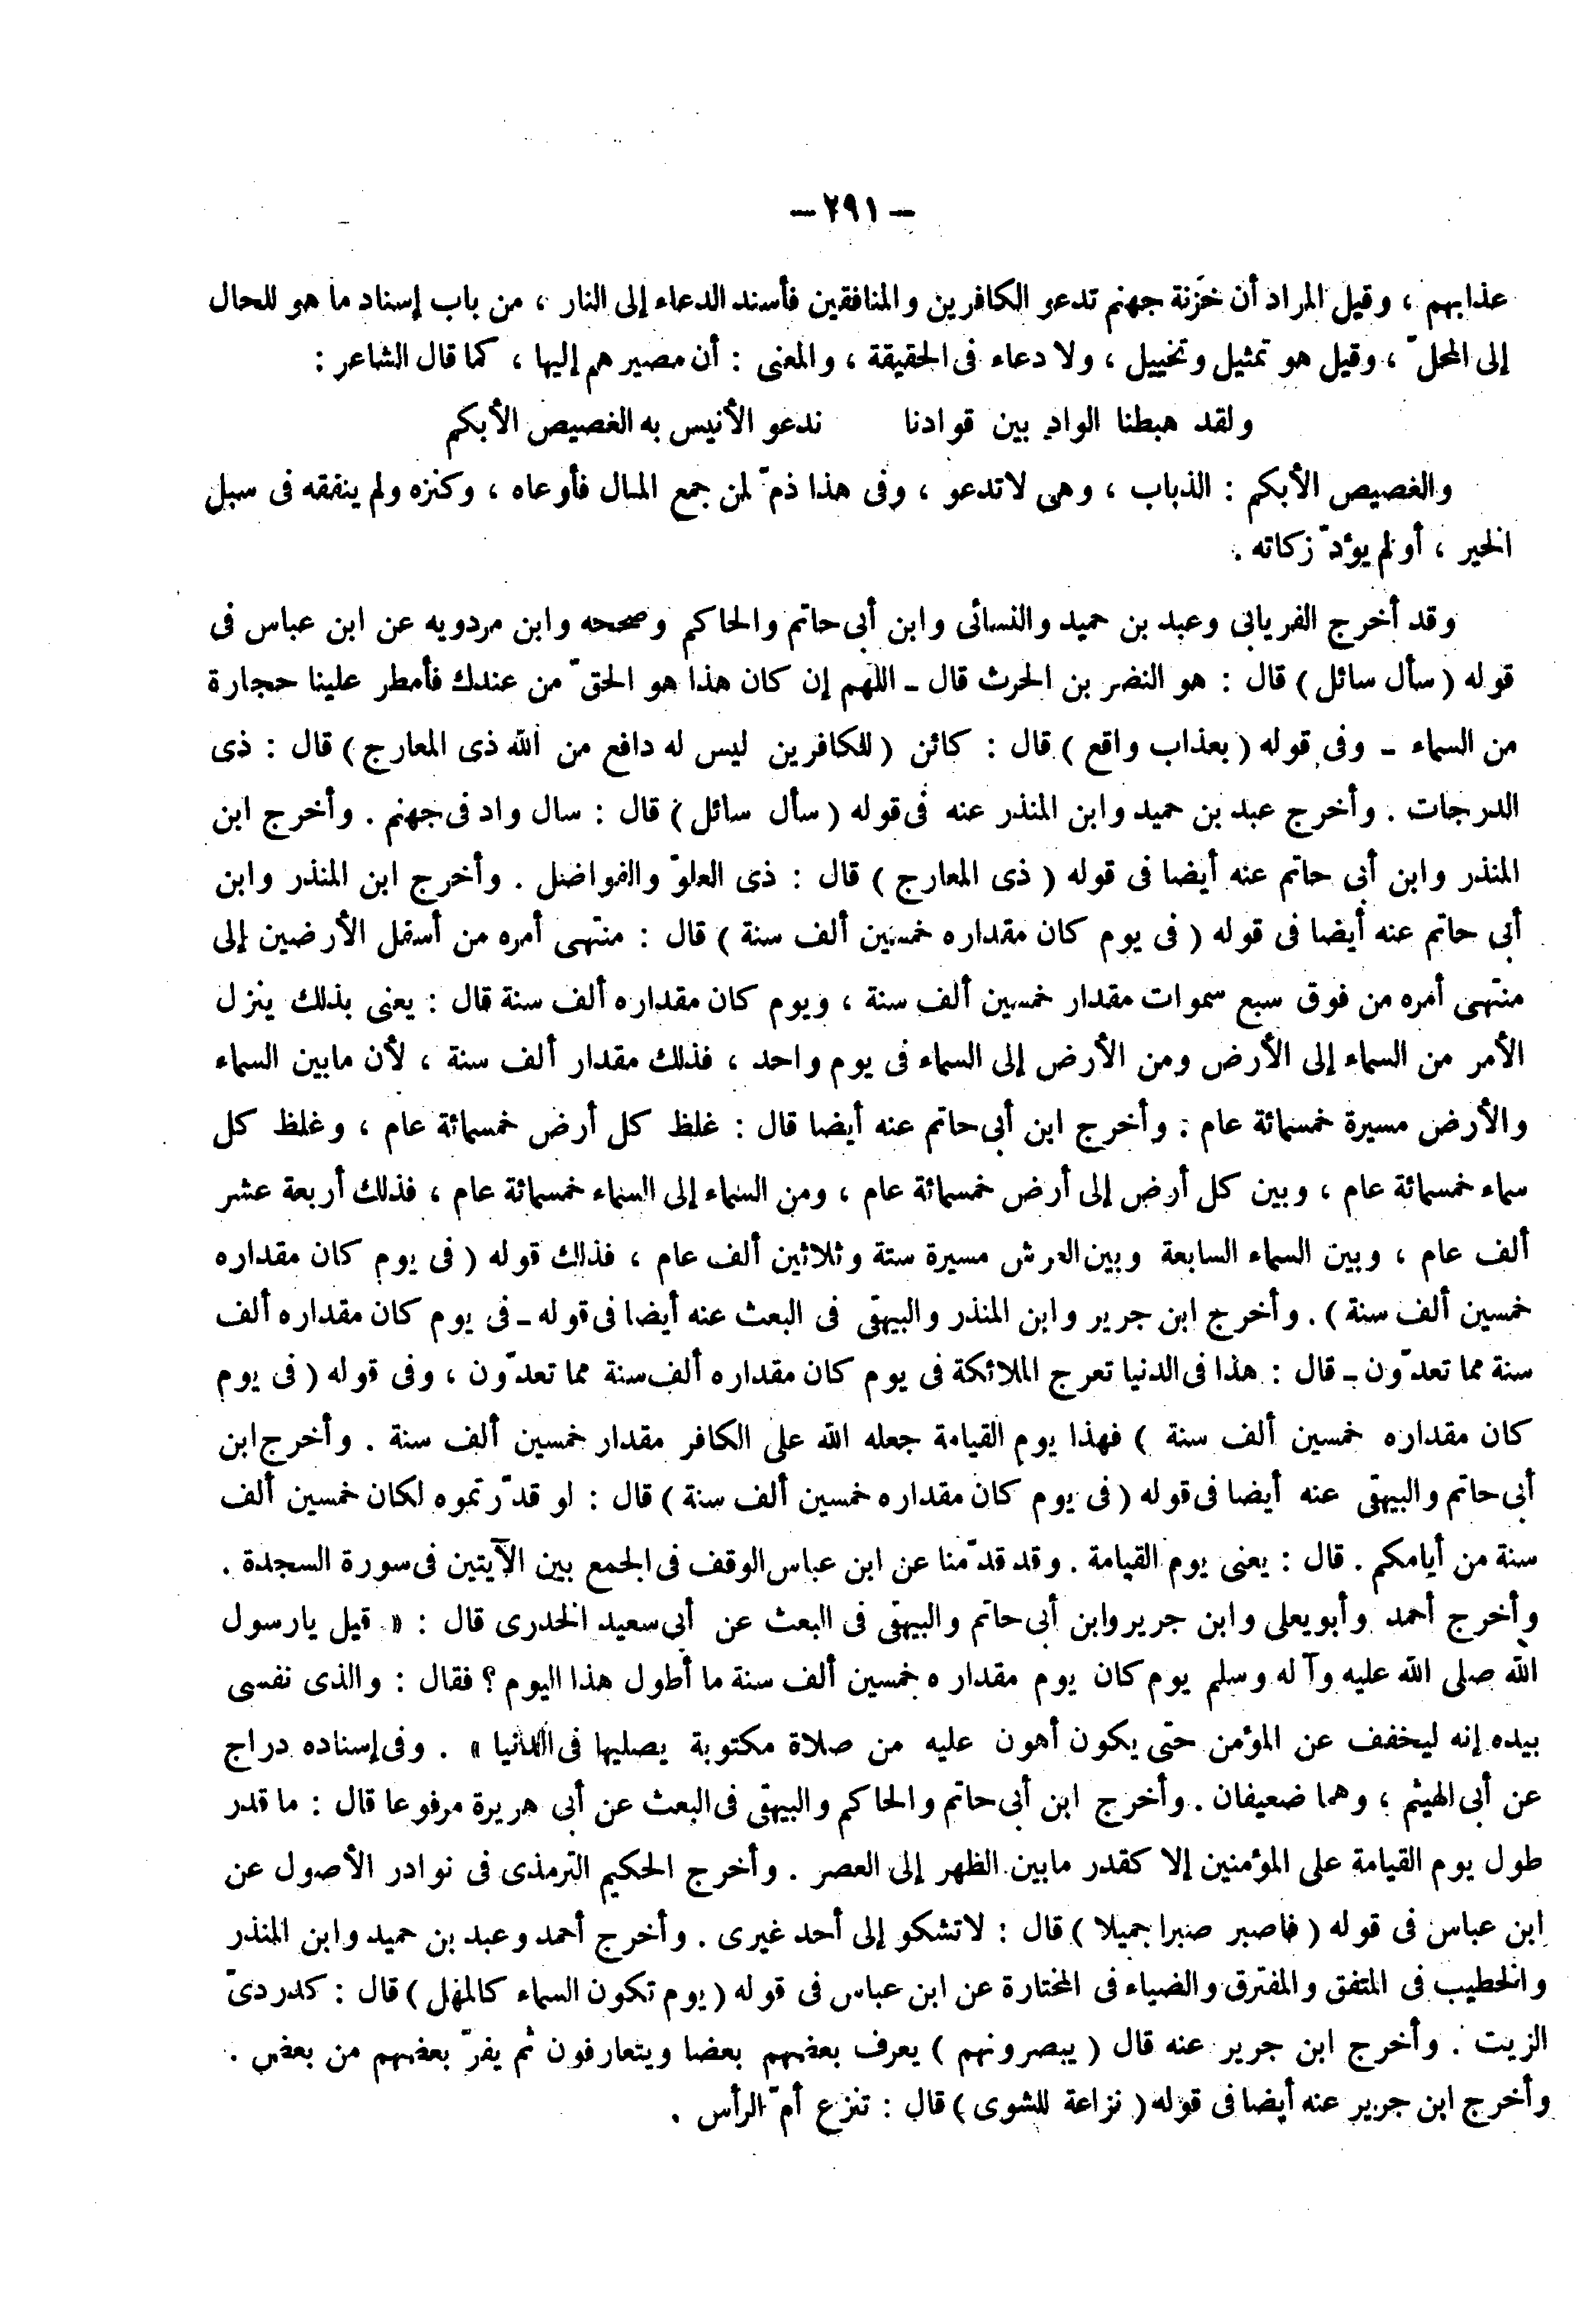 — ٢٩١ —
عذابهم ، وقيل المراد أن خزنة جهنم تدعو الكافرين والمنافقين فأسند الدعاء إلى النار ، من باب إسناد ما هو للحال
إلى المحلّ ، وقيل هو تمثيل وتخييل ، ولا دعاء فى الحقيقة ، والمعنى : أن مصيرهم إليها ، كما قال الشاعر :
ولقد هبطنا الواد بين قوادنا ندعو الأنيس به الغصيص الأبكم
والغصيص الأبكم : الذباب ، وهى لاتدعو ، وفى هذا ذمّ لمن جمع المال فأوعاه ، وكنزه ولم ينفقه فى سبل
الخير ، أو لم يؤدّ زكاته .
وقد أخرج الفريابى وعبد بن حميد والنسائى وابن أبى حاتم والحاكم وصححه وابن مردويه عن ابن عباس فى
قوله ( سأل سائل ) قال : هو النضر بن الحرث قال ـ اللهم إن كان هذا هو الحقّ من عندك فأمطر علينا حجارة
من السماء ـ وفى قوله ( بعذاب واقع ) قال : كائن ( للكافرين ليس له دافع من الله ذى المعارج ) قال : ذى
الدرجات . وأخرج عبد بن حميد وابن المنذر عنه فى قوله ( سأل سائل ) قال : سال واد فى جهنم . وأخرج ابن
المنذر وابن أبى حاتم عنه أيضا فى قوله ( ذى المعارج ) قال : ذى العلوّ والفواضل . وأخرج ابن المنذر وابن
أبى حاتم عنه أيضا فى قوله ( فى يوم كان مقداره خمسين ألف سنة ) قال : منتهى أمره من أسفل الأرضين إلى
منتهى أمره من فوق سبع سموات مقدار خمسين ألف سنة ، ويوم كان مقداره ألف سنة قال : يعنى بذلك ينزل
الأمر من السماء إلى الأرض ومن الأرض إلى السماء فى يوم واحد ، فذلك مقدار ألف سنة ، لأن مابين السماء
والأرض مسيرة خمسمائة عام . وأخرج ابن أبى حاتم عنه أيضا قال : غلظ كل أرض خمسمائة عام ، وغلظ كل
سماء خمسمائة عام ، وبين كل أرض إلى أرض خمسمائة عام ، ومن السماء إلى السماء خمسمائة عام ، فذلك أربعة عشر
ألف عام ، وبين السماء السابعة وبين العرش مسيرة ستة وثلاثين ألف عام ، فذلك قوله ( فى يوم كان مقداره
خمسين ألف سنة ) . وأخرج ابن جرير وابن المنذر والبيهقى فى البعث عنه أيضا فى قوله ـ فى يوم كان مقداره ألف
سنة مما تعدّون ـ قال : هذا فى الدنيا تعرج الملائكة فى يوم كان مقداره ألف سنة مما تعدّون ، وفى قوله ( فى يوم
كان مقداره خمسين ألف سنة ) فهذا يوم القيامة جعله الله على الكافر مقدار خمسين ألف سنة . وأخرج ابن
أبى حاتم والبيهقى عنه أيضا فى قوله ( فى يوم كان مقداره خمسين ألف سنة ) قال : لو قدّرتموه لكان خمسين ألف
سنة من أيامكم . قال : يعنى يوم القيامة . وقد قدّمنا عن ابن عباس الوقف فى الجمع بين الآيتين فى سورة السجدة .
وأخرج أحمد وأبويعلى وابن جرير وابن أبى حاتم والبيهقى فى البعث عن أبى سعيد الخدرى قال : « قيل يارسول
الله صلى الله عليه وآله وسلم يوم كان يوم مقداره خمسين ألف سنة ما أطول هذا اليوم ؟ فقال : والذى نفسى
بيده إنه ليخفف عن المؤمن حتى يكون أهون عليه من صلاة مكتوبة يصليها فى الدنيا » . وفى إسناده دراج
عن أبى الهيثم ، وهما ضعيفان . وأخرج ابن أبى حاتم والحاكم والبيهقى فى البعث عن أبى هريرة مرفوعا قال : ما قدر
طول يوم القيامة على المؤمنين إلا كقدر مابين الظهر إلى العصر . وأخرج الحكيم الترمذى فى نوادر الأصول عن
ابن عباس فى قوله ( فاصبر صبرا جميلا ) قال : لاتشكو إلى أحد غيرى . وأخرج أحمد وعبد بن حميد وابن المنذر
والخطيب فى المتفق والمفترق والضياء فى المختارة عن ابن عباس فى قوله ( يوم تكون السماء كالمهل ) قال : كدردىّ
الزيت . وأخرج ابن جرير عنه قال ( يبصرونهم ) يعرف بعضهم بعضا ويتعارفون ثم يفرّ بعضهم من بعض .
وأخرج ابن جرير عنه أيضا فى قوله ( نزاعة للشوى ) قال : تنزع أمّ الرأس .